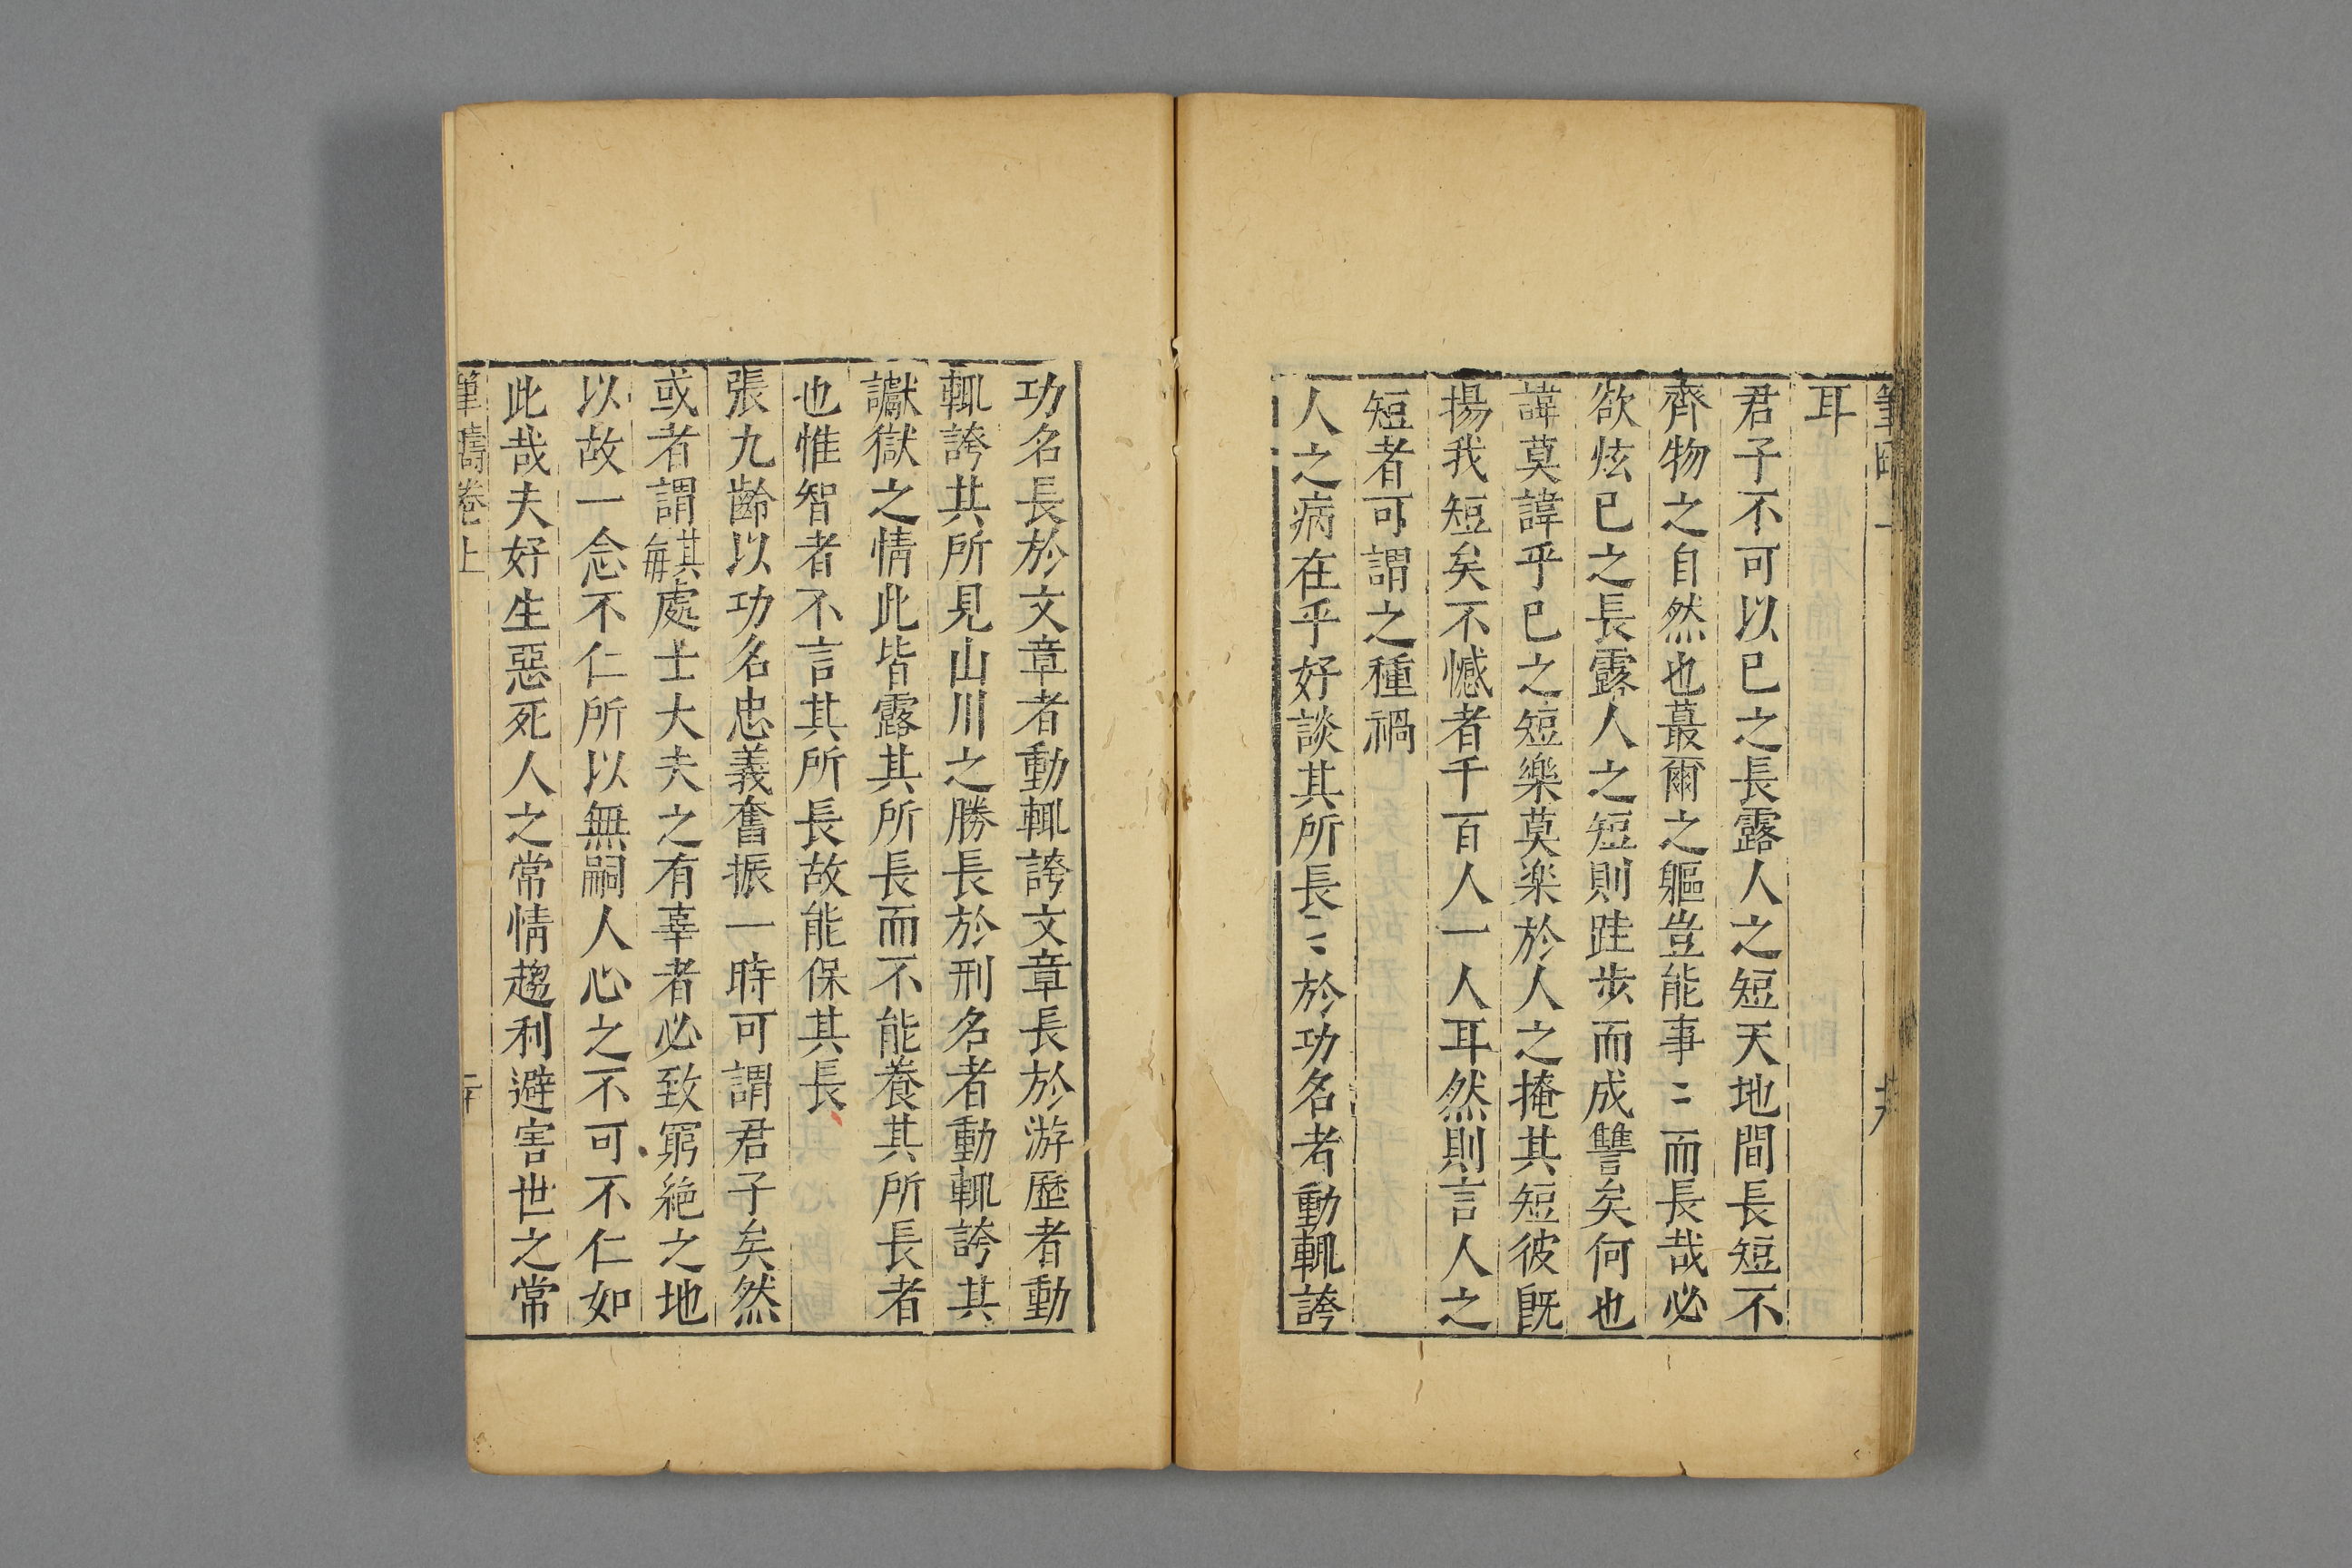 耳
君子不可以已之長露人之短天地間長短不
齊物之自然也蕞爾之軀豈能事〻而長哉必
欲炫已之長露人之短則跬步而成讐矣何也
諱莫諱乎已之短樂莫楽於人之掩其短彼既
揚我短矣不憾者千百人一人耳然則言人之
短者可謂之種禍
人之病在乎好談其所長〻於功名者動輒誇
功名長於文章者動輒誇文章長於游歷者動
輒誇其所見山川之勝長於刑名者動輒誇其
讞獄之情此皆露其所長而不能養其所長者
也惟智者不言其所長故能保其長
張九齡以功名忠義奮振一時可謂君子矣然
或者謂其每處士大夫之有辜者必致窮絶之地
以故一念不仁所以無嗣人心之不可不仁如
此哉夫好生惡死人之常情趨利避害世之常
筆疇卷上